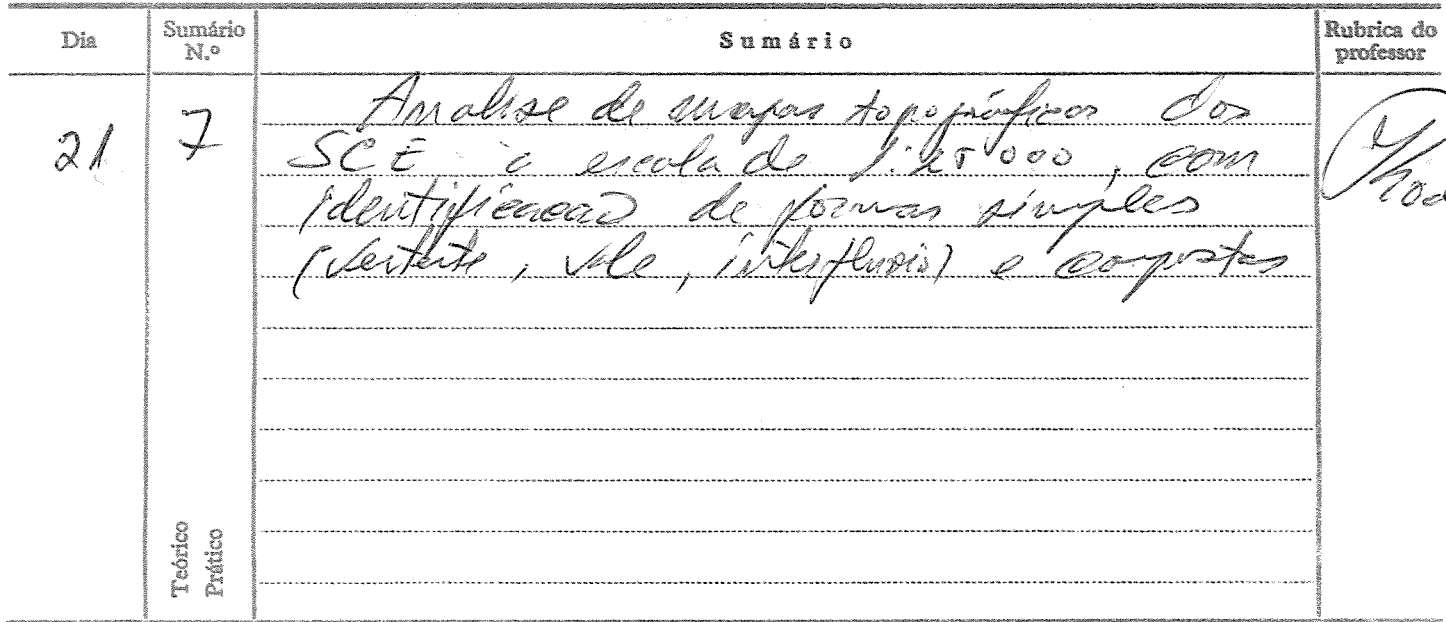 Dia
Sumário N.º
Sumário
Rubrica do professor
21
7
Analise de mapas topográficos dos
SCE à escala de 1:25 000, com
identificação de formas simples
(vertente, vale, interflúvio) e compostas
Teórico
Prático